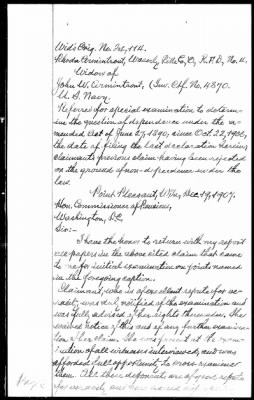 Wid's Orig. No. 20,114.
Rhoda Armintrout, Waverly, Pike Co., O., R.F.D. No. 4.
Widow of
John W. Armintrout, (Inv. Ctf. No. 4870.
U.S. Navy.
Referred for special examination to determ-
ine the question of dependence under the a-
mended Act of June 27, 1890, since Oct. 22, 1902,
the date of filing the last declaration herein,
claimant's previous claim having been rejected
on the ground of non-dependence under the
law.
Point Pleasant, W.Va., Dec. 19, 1907.
Hon. Commissioner of Pensions,
Washington, D.C.
Sir:-
I have the honor to return with my report
the papers in the above cited claim that came
to me for initial examination on points named
in the foregoing caption.
Claimant, who is of excellent repute for ve-
racity, was duly notified of the examination and
was fully advised of her rights thereunder. She
waived notice of this and of any further examina-
tion of her claim. She was present at the exam-
ination of all witnesses interviewed, and was
afforded due opportunity to cross examine
them. All these deponents are of good repute
for veracity,